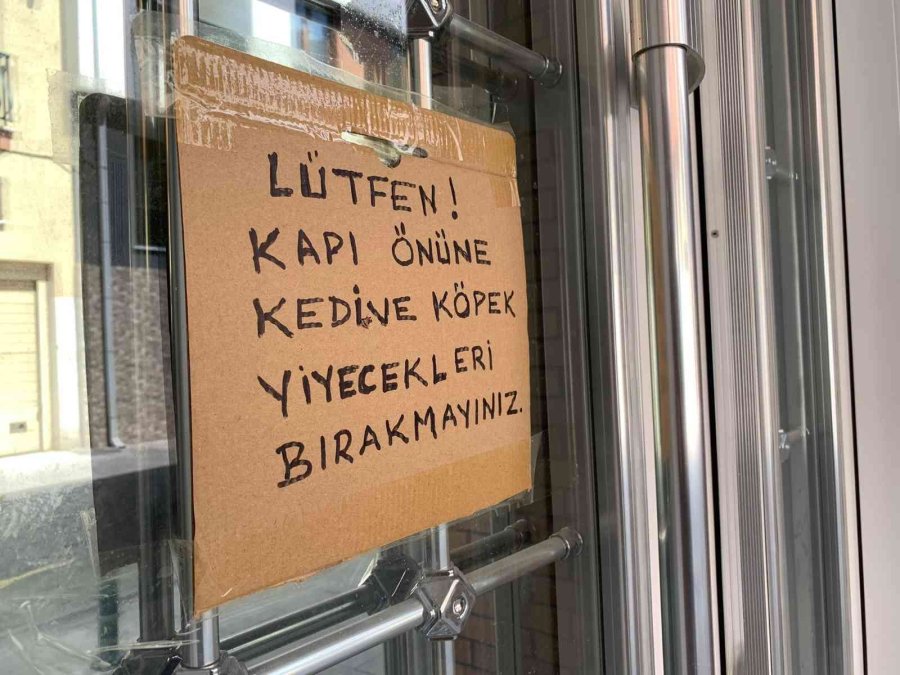 LÜTFEN!
KAPI ÖNÜNE
KEDİVE KÖPEK
YİYECEKLERİ
BIRAKMAYINIZ.